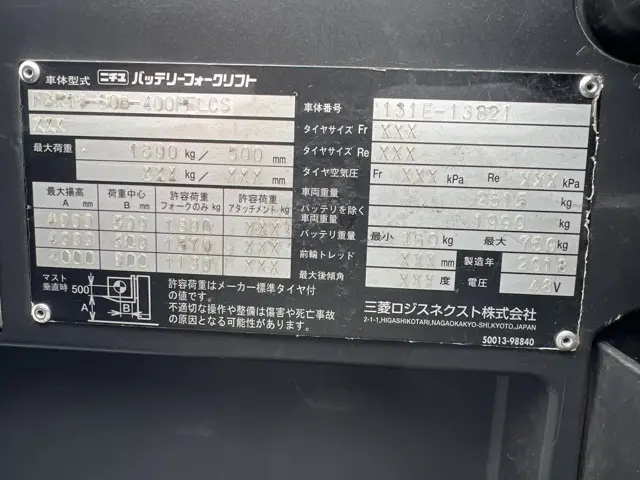 車体型式 ニチユ バッテリーフォークリフト
車体番号 131E-13821
XXX
タイヤサイズ Fr XXX
最大荷重 1800 kg/ 500 mm
タイヤサイズ Re XXX
XXX kg/ XXX mm
タイヤ空気圧 Fr XXX kPa Re XXX kPa
車両重量 kg
バッテリを除く車両重量 kg
最大揚高 A mm
荷重中心 B mm
許容荷重 フォークのみ kg
許容荷重 アタッチメント kg
4000 500 1800 XXX
XXX
4000 XXX
バッテリ重量 最小 kg 最大 kg
前輪トレッド XXX mm 製造年 2018
最大後傾角 XXX 度 電圧 48V
マスト垂直時 500 A B
許容荷重はメーカー標準タイヤ付
の値です。
不適切な操作や整備は傷害や死亡事故
の原因となる可能性があります。
三菱ロジスネクスト株式会社
2-1-1,HIGASHIKOTARI,NAGAOKAKYO-SHI,KYOTO,JAPAN
50013-98840